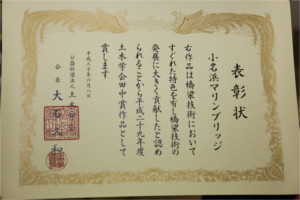 表彰状
小名浜マリンブリッジ
右作品は橋梁技術において
すぐれた特色を有し橋梁技術の
発展に大きく貢献したと認め
られることから平成二十九年度
土木学会田中賞作品として
賞します
平成三十年六月八日
公益社団法人土木学会
会長 大石久和